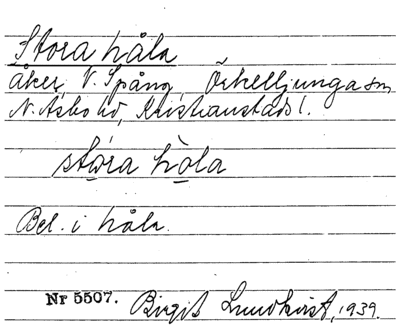 Stora håla
åker, V. Spång, Örkelljunga sn,
N. Åsbo hd, Kristianstads l.
stóra hòla
Bel. i håla.
Nr 5507. Birgit Lundkvist, 1939.